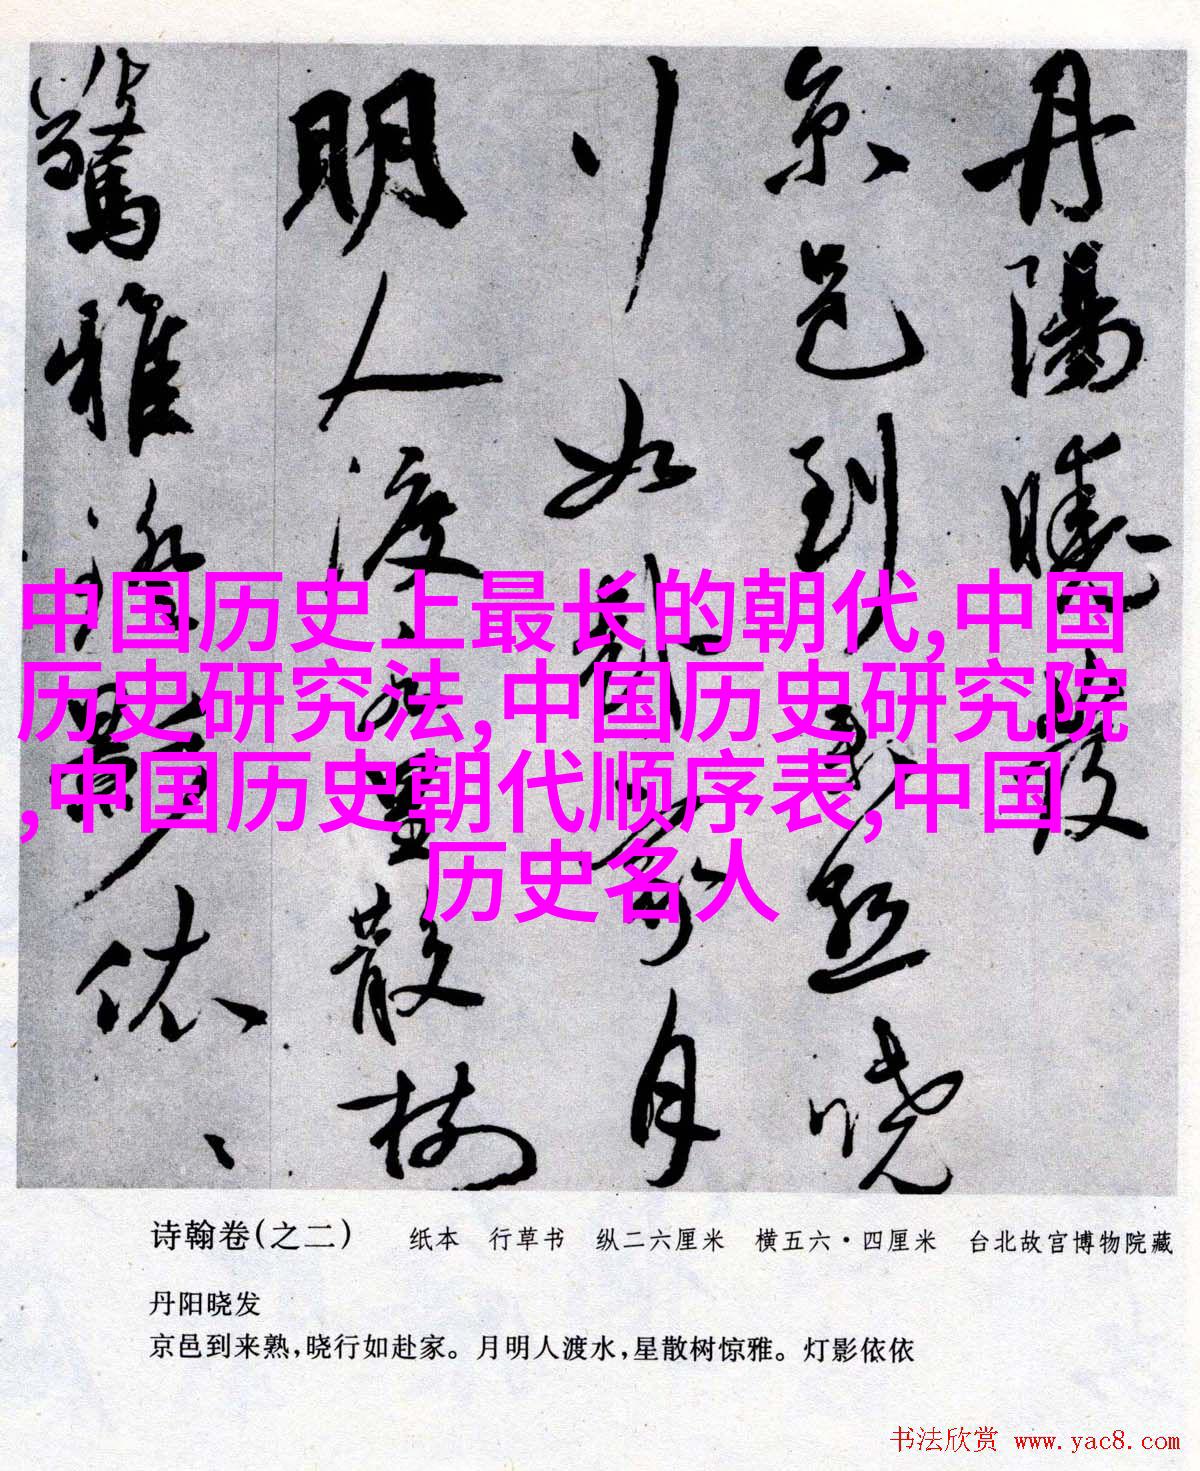 丹陽曉發
京邑到来熟晓
行如赴家月
明人渡水星散樹
驚雅燈影依、、
中国历史上最长的朝代,中国
历史研究法,中国历史研究院
,中国历史朝代顺序表,中国
历史名人
诗翰卷(之二) 纸本 行草书 纵二六厘米 横五六·四厘米 台北故宫博物院藏
丹阳晓发
京邑到来熟,晓行如赴家。月明人渡水,星散树惊雅。灯影依依
书法欣赏 www.yac8.com